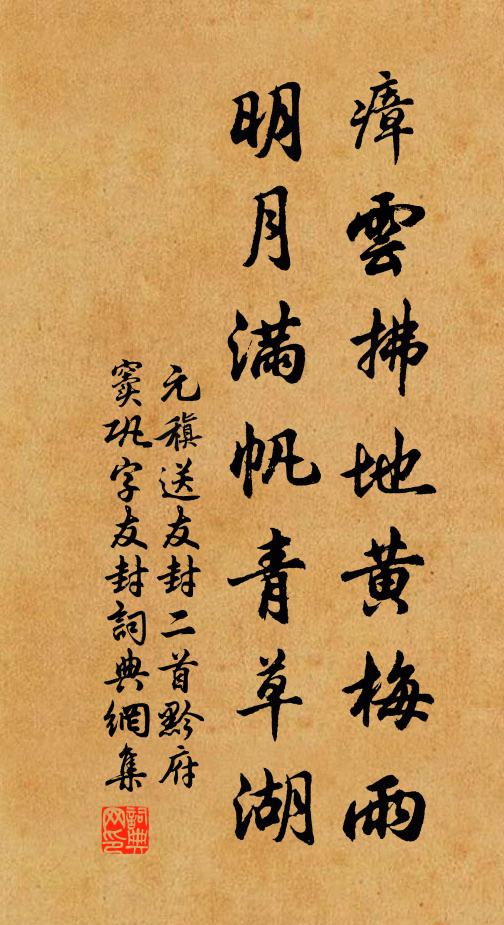 瘴雲拂地黄梅雨
明月滿帆青草湖
元稹送友封二首黔府
窦巩字友封詞典網集
詞典网印